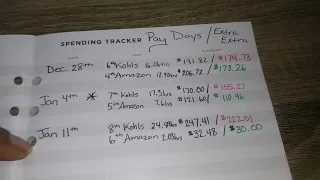 SPENDING TRACKER Pay Days / Extra Extra
Dec. 28th 6th Kohls 16.06hrs $191.82 / $174.73
4th Amazon 12.92hrs $206.72 / $173.26
Jan 4th * 7th Kohls 17.5hrs $170.00 / $155.27
5th Amazon 7.6hrs $121.60 / $110.96
Jan 11th 8th Kohls 24.8hrs $247.41 / $222.01
6th Amazon 2.03hrs $32.48 / $30.00